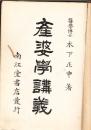 醫學博士 木下正中 著
産婆學講義
南江堂書店發行